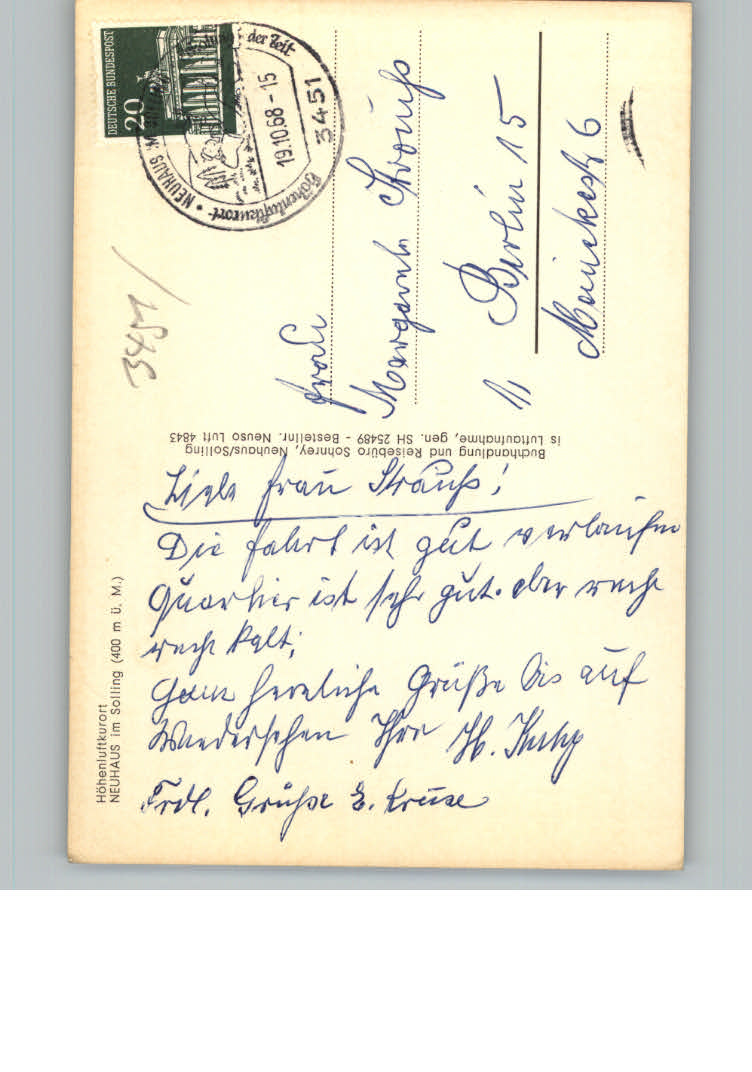 Höhenluftkurort
NEUHAUS im Solling (400 m ü. M.)
Liebe Frau Strauß!
Die Fahrt ist gut verlaufen
Quartier ist sehr gut. aber recht
recht kalt;
Ganz herzliche Grüße bis auf
Wiedersehen Ihre H.
Frdl. Grüße E. Kruse
Buchhandlung und Reisebüro Sohnrey, Neuhaus/Solling
is Luftaufnahme, gen. SH 25489 - Bestellnr. Neuso Luft 4843
DEUTSCHE BUNDESPOST
20
3451
NEUHAUS
der Zeit
Höhenluftkurort
19.10.68-15
3451
Frau
Margarete Strauß
1 Berlin 15
Meinekestr 6